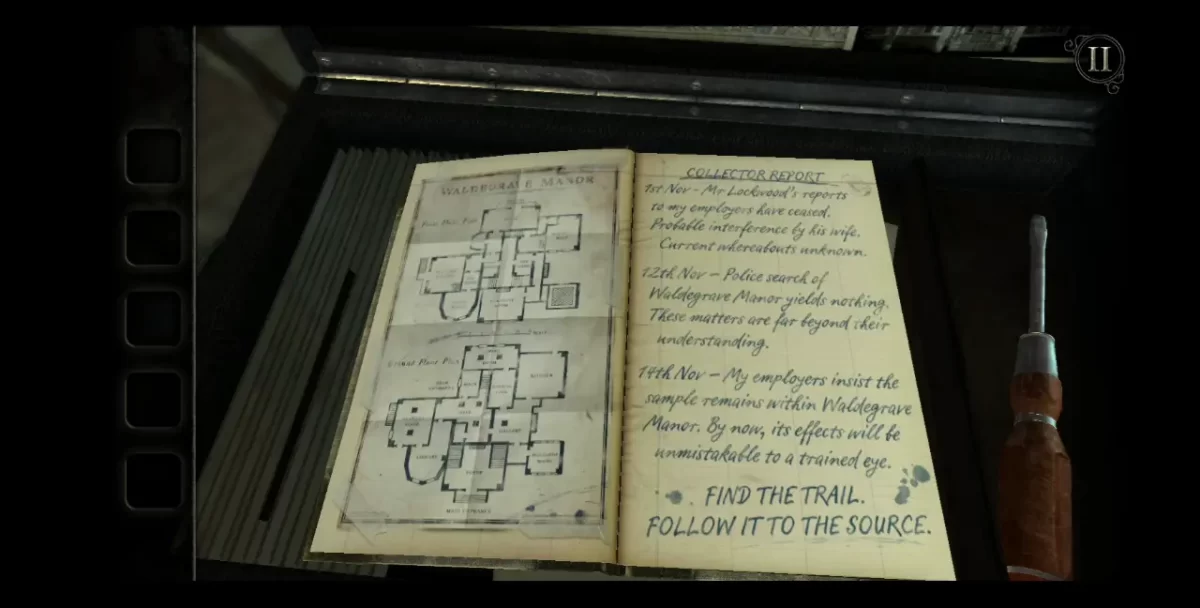 II
WALDEGRAVE MANOR
First Floor Plan
Ground Floor Plan
KITCHEN
LIBRARY
MAIN ENTRANCE
COLLECTOR REPORT
1st Nov - Mr Lockwood's reports
to my employers have ceased.
Probable interference by his wife.
Current whereabouts unknown.
12th Nov – Police search of
Waldegrave Manor yields nothing.
These matters are far beyond their
understanding.
14th Nov – My employers insist the
sample remains within Waldegrave
Manor. By now, its effects will be
unmistakable to a trained eye.
FIND THE TRAIL.
FOLLOW IT TO THE SOURCE.